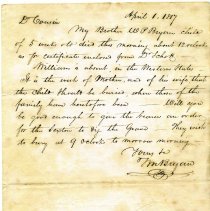 April 1. 1857
Dr Cousin
My Brother W P Bryan child
of 5 weeks old died this morning about 12 oclock
as pr certificate enclosed from Dr Schott
William is absent in the Western States
It is the wish of Mother, and of his wife that
the Child should be buried where others of the
family have heretofore been Will you
be good enough to give the necessary order
for the Sexton to dig the Grave They wish
to bury at 9 Oclock to morrow morning
Yours &c
Bryan